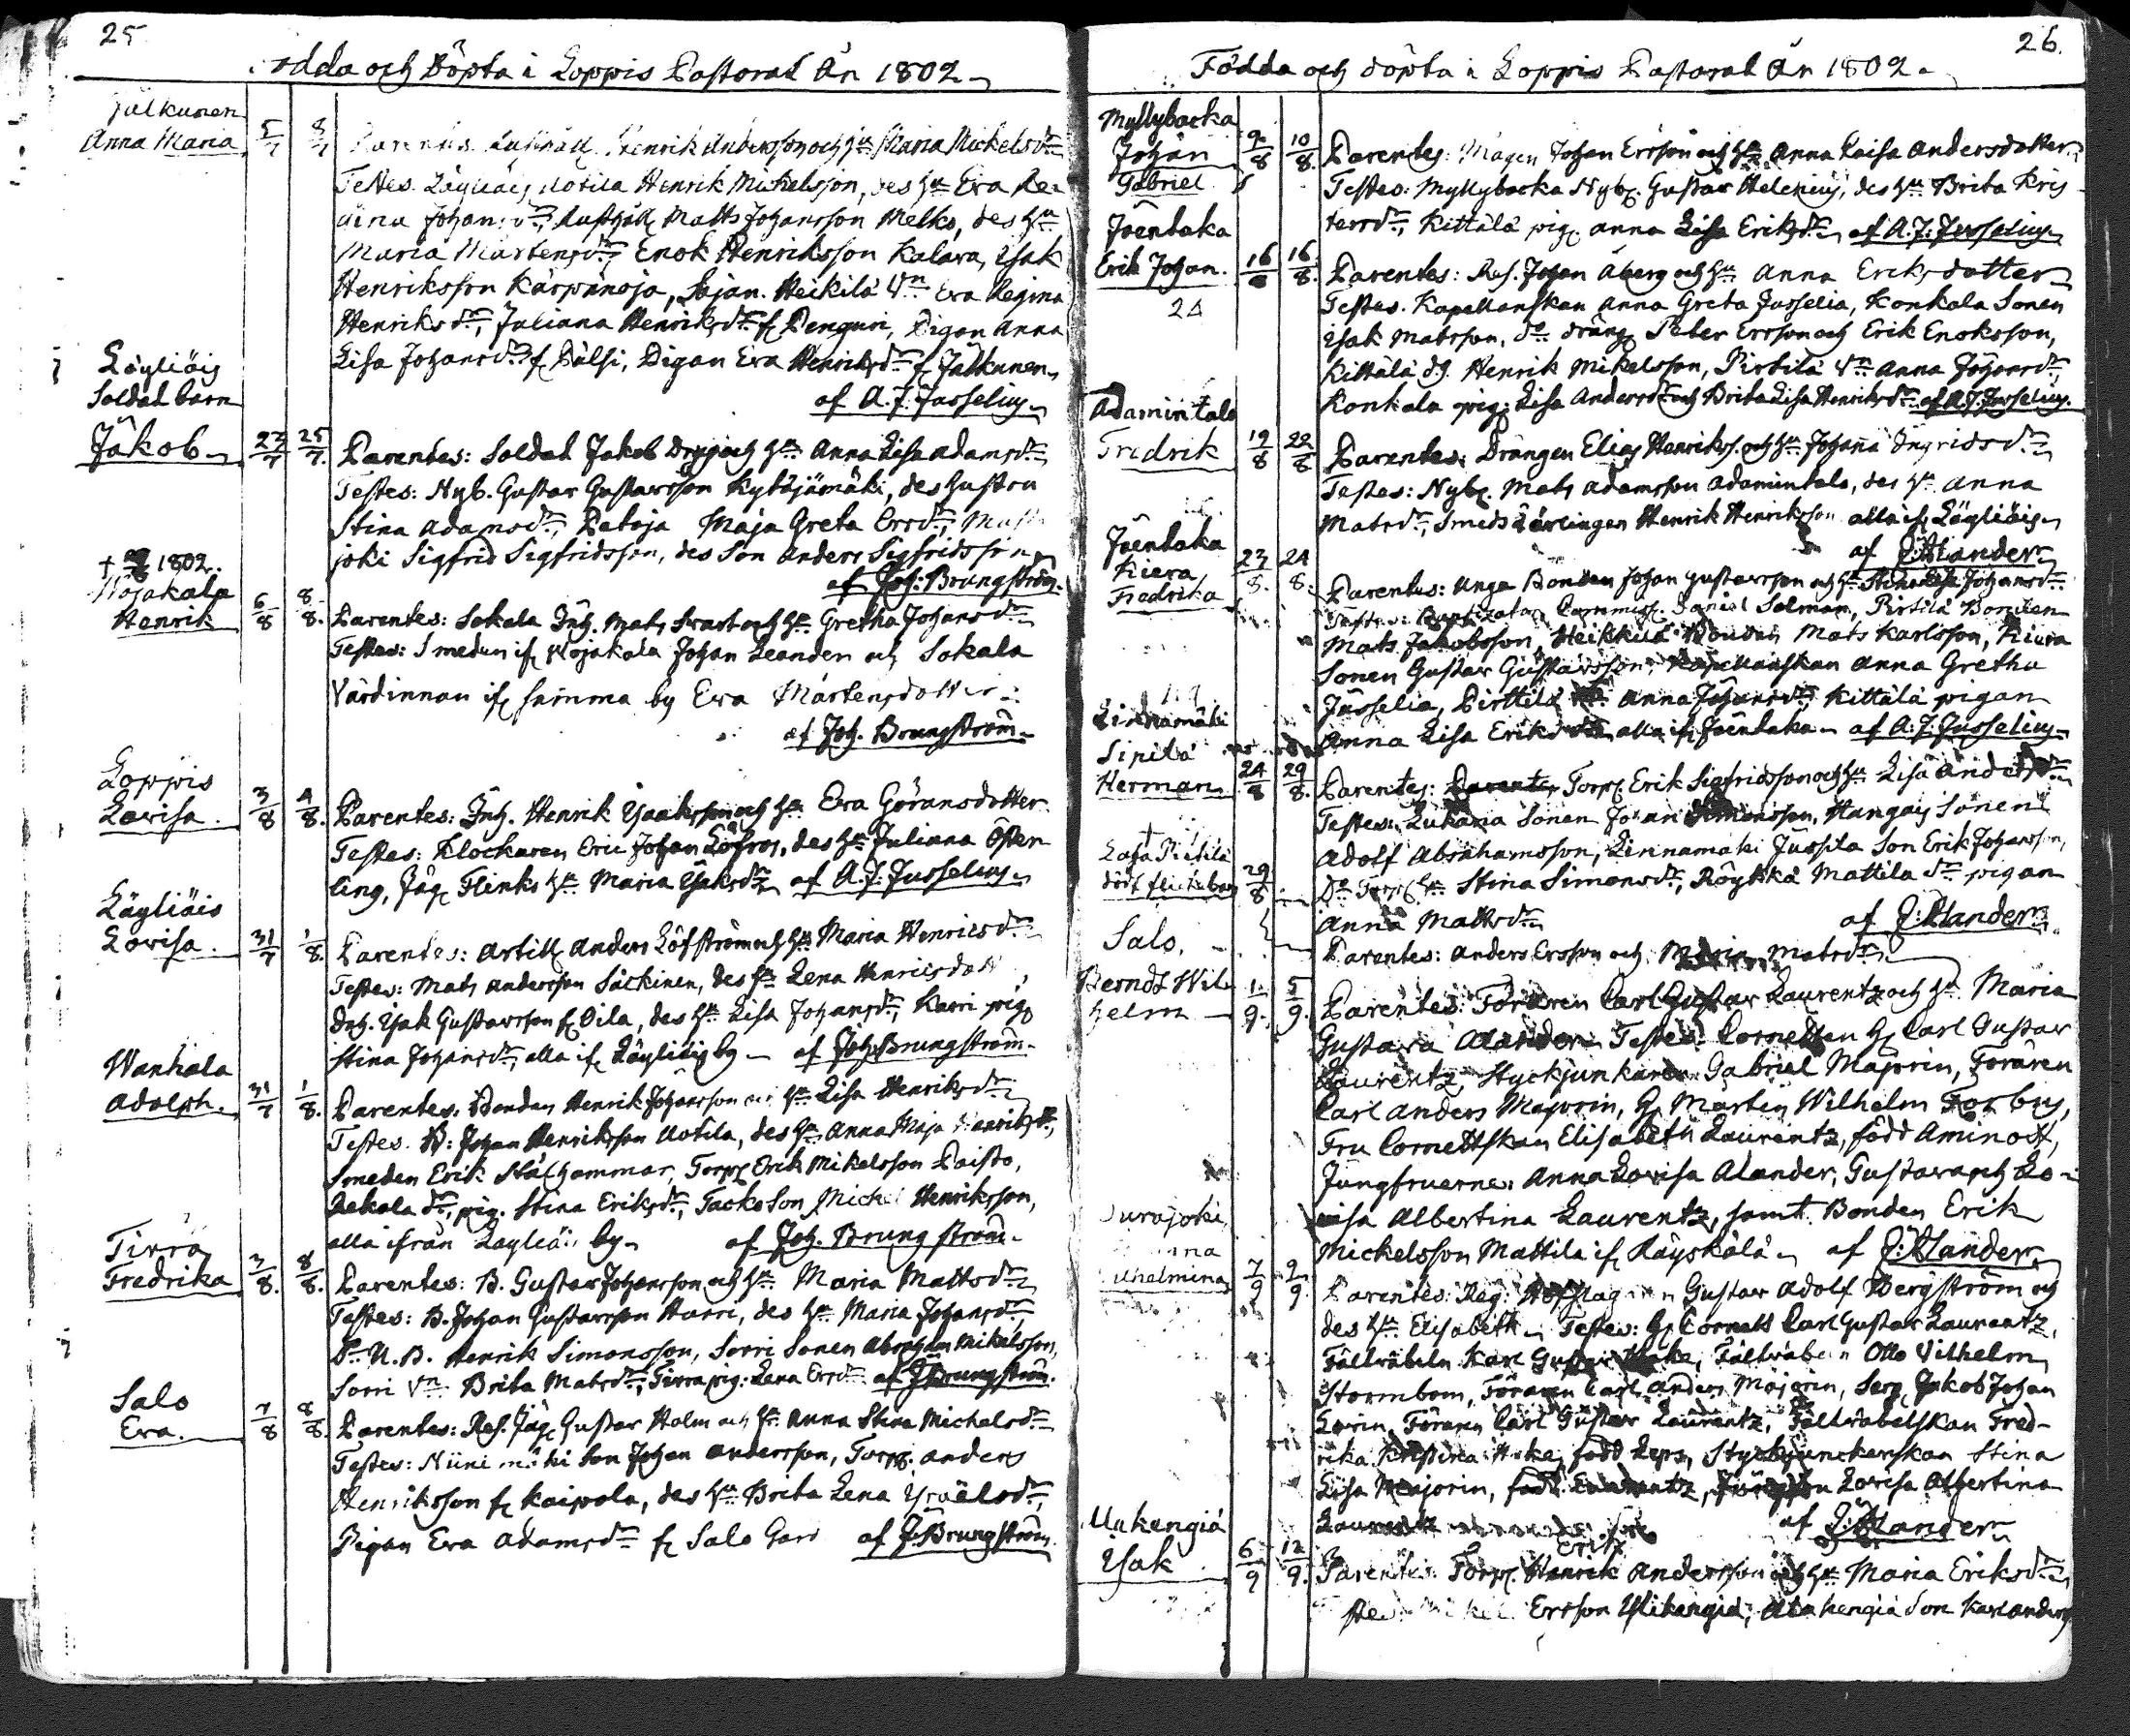 25
Födda och Döpta i Loppis Pastorat År 1802
Jälkunen
Anna Maria 5/7 8/7 Parentes Rusthåll. Henrik Andersson och hu Maria Mickelsdr
Testes Läyliäis Uotila Henrik Mickelsson, des hu Eva Re
gina Johansdr, Rusthåll Matts Johansson Melko, des hu
Maria Mårtensdr, Enok Henriksson Kalara, Isak
Henriksson Kärpänoja, Sajan. Heikilä Vn Eva Regina
Henriksdr, Juliana Henriksdr f. Penguri, Pigan Anna
Lisa Johansdr f. Pälsi, Pigan Eva Henriksdr f. Jälkunen
af A. J. Jusselius
Läyliäis
Soldat barn
Jakob 23/7 25/7. Parentes: Soldat Jakob Dryg och hu Anna Lisa Adamsdr
Testes: Nyb. Gustav Gustavsson Kytöjämäki, des hustru
Stina Adamsdr, Patoja Maja Greta Ersdr,
joki Sigfrid Sigfridsson, des Son Anders Sigfridsson
af Joh: Brungström.
† 1802.
Wojakala
Henrik 6/8 8/8. Parentes: Sokala Inh. Mats Svart och hu Gretha Johansdr
Testes: Smeden if. Wojakala Johan Leanden och Sokala
Värdinnan if. samma by Eva Mårtensdotter
af Joh. Brungström
Loppis
Lovisa. 3/8 4/8. Parentes: Inh. Henrik Isaaksson och hu Eva Göransdotter
Testes: Klockaren Eric Johan Löfros, des hu Juliana Öster
ling, Jäg. Flinks hu Maria Isaksdr af A. J. Jusselius
Läyliäis
Lovisa. 31/7 1/8. Parentes: Artill Anders Löfström och hu Maria Henricsdr
Testes: Mats Andersson Säckinen, des hu Lena Henricsdotr,
Inh. Isak Gustavsson f. Oila, des hu Lisa Johansdr, Karri pig.
Stina Johansdr, alla if. Läyliäis by af Joh. Brungström
Wanhala
Adolph. 31/7 1/8. Parentes. Bonden Henrik Johansson och hu Lisa Henriksdr
Testes. B: Johan Henriksson Uotila, des hu Anna Maja Henriksdr,
Smeden Erik Stålhammar, Torp. Erik Mikelsson Paisto,
Rekola dr, pig. Stina Eriksdr, Tacko Son Mickel Henriksson,
alla ifrån Läyliäis by af Joh. Brungström
Tirra
Fredrika 3/8. 8/8. Parentes: B. Gustav Johansson och hu Maria Mattsdr
Testes: B. Johan Gustavsson Harri, des hu Maria Johansdr,
Do U. B. Henrik Simonsson, Sorri Sonen Abraham Mikelsson,
Sorri Vn Brita Matsdr, Tirra pig: Lena Ersdr af J. Brungström.
Salo
Eva. 7/8 8/8. Parentes: Res. Jäg. Gustav Holm och hu Anna Stina Michelsdr
Testes: Niinimäki Son Johan Andersson, Torp. Anders
Henriksson f. Kaipola, des hu Brita Lena Israelsdr,
Pigan Eva Adamsdr f. Salo Gård af J. Brungström
26.
Födda och döpta i Loppis Pastorat År 1802.
Myllybacka
Johan 9/8 10/8. Parentes: Mågen Johan Ersson och hu Anna Caisa Andersdotter
Gabriel Testes: Myllybacka Nyb. Gustav Helenius, des hu Brita Kris
tersdr, Kittälä pig. Anna Lisa Eriksdr af A. J. Jusselius
Joentaka
Erik Johan. 16/8 16/8. Parentes: Res. Johan Åberg och hu Anna Eriksdotter
24 Testes. Kapellanskan Anna Greta Jusselia, Konkala Sonen
Isak Matsson, do dräng Peter Ersson och Erik Enoksson,
Kittälä dg. Henrik Mikelsson, Pirtilä Vn Anna Johansdr,
Konkala pig: Lisa Andersdr och Brita Lisa Henriksdr af A. J. Jusselius.
Adamintalo
Fredrik 19/8 22/8 Parentes: Drängen Elias Henrikss. och hu Johana Ingridsdr
Testes: Nyb. Mats Adamsson Adamintalo, des hu Anna
Matsdr, Smeds Lärlingen Henrik Henriksson alla if. Läyliäis
af J: Alander
Joentaka
Kiera
Fredrika 23/8. 24/8. Parentes: Unga Bonden Johan Gustavsson och hu Johansdr
Testes: Daniel Solman, Pirtilä Bonden
Mats Jakobsson, Heikkilä Bonden Mats Karlsson, Kiera
Sonen Gustav Gustavsson, Kapellanskan Anna Gretha
Jusselia, Pirttilä Anna Johansdr Kittälä pigan
Anna Lisa Eriksdr, alla if. Joentaka af A: J. Jusselius
Linnamäki
Sipilä
Herman 24/8 29/8. Parentes: Torp. Erik Sigfridsson och hu Lisa Andersdr
Testes: Lukaria Sonen Johan Simonsson, Hangas Sonen
Adolf Abrahamsson, Linnamäki Jussila Son Erik Johansson,
† Do Torp. hu Stina Simonsdr, Röykkä Mattila dr pigan
dödf. flickebarn 29/8 Anna Mattsdr af J: Alander
Salo, Parentes: Anders Ersson och Maria Matsdr
Berndt Wil
helm 1/9. 5/9. Parentes: Föraren Carl Gustav Laurentz och hu Maria
Gustava Alander Testes: Cornetten H. Carl Gustav
Laurentz, Styckjunkaren Gabriel Majorin, Föraren
Carl Anders Majorin, H. Martin Wilhelm Forbus,
Fru Cornettskan Elisabeth Laurentz, född Aminoff,
Jungfruerne: Anna Lovisa Alander, Gustava och Lo-
visa Albertina Laurentz, samt Bonden Erik
Mickelsson Mattila if. Räyskälä af J: Alander
Wilhelmina 7/9 9/9. Parentes: Reg: Gustav Adolf Bergström och
des hu Elisabeth Testes: H. Cornett Carl Gustav Laurentz,
Fältväbeln Karl Gustav Fältväbeln Otto Vilhelm
Stormbom, Föraren Carl Anders Majorin, Serg. Jakob Johan
Lorin, Föraren Carl Gustav Laurentz, Fältväbelskan Fred-
rika Kristina född Leps, Styckjunckerskan Stina
Lisa Majorin, född Laurentz, Lovisa Albertina
Laurentz af J: Alander
Uukengiä
Isak 6/9 12/9. Parentes: Torp. Henrik Andersson och hu Maria Eriksdr
Ersson Ylikengiä, Alakengiä Son Karl Anders